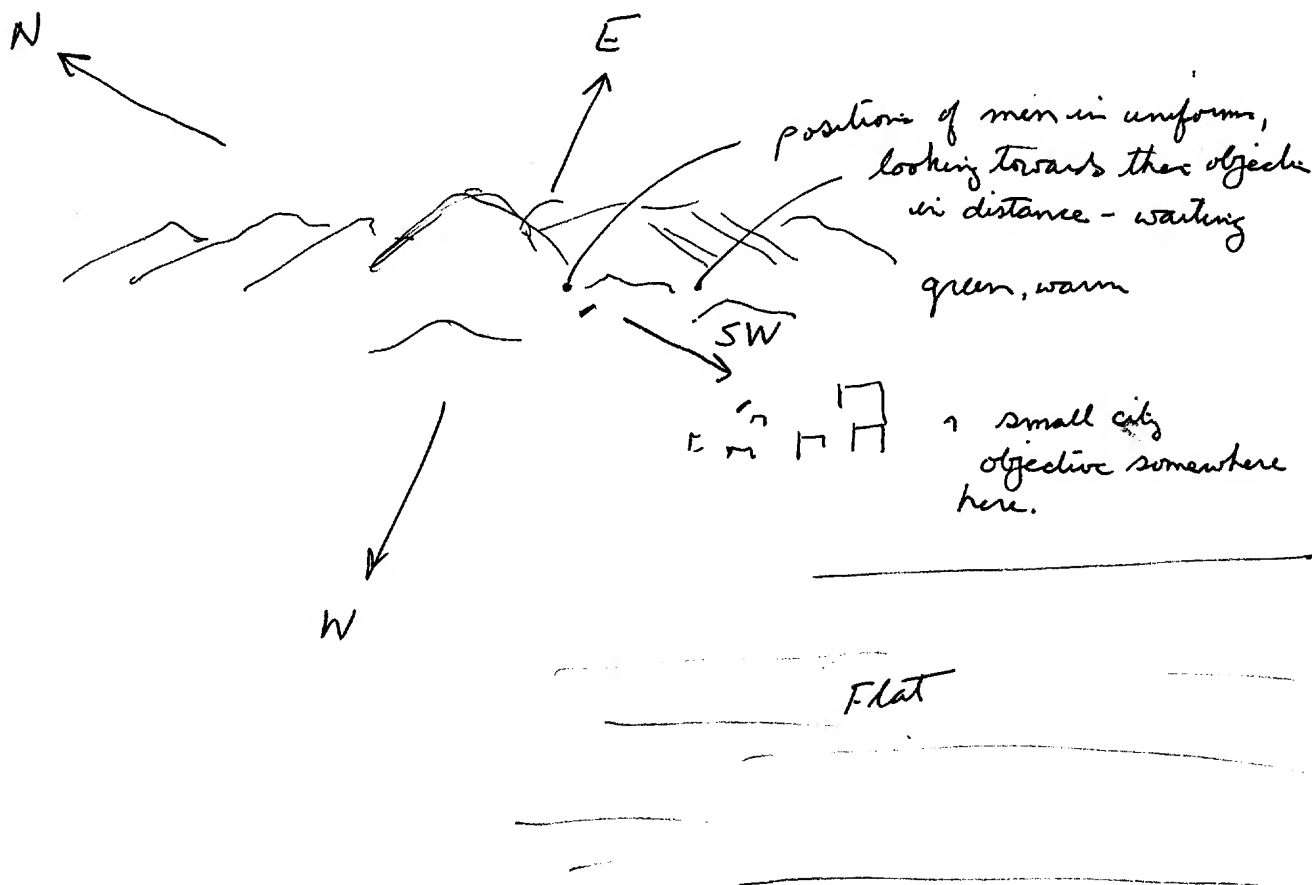 N
E
positions of men in uniforms,
looking towards the objective
in distance - waiting
green, warm
SW
small city
objective somewhere
here.
W
Flat